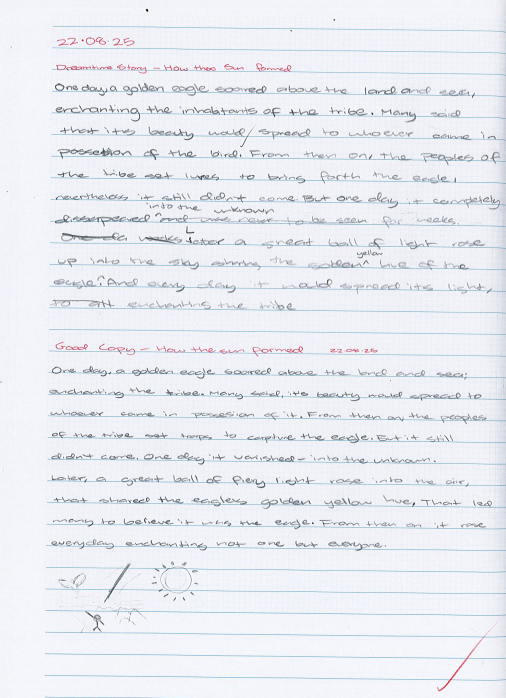 22.08.25
Dreamtime Story - How theo Sun formed
One day, a golden eagle soared above the land and sea,
enchanting the inhabitants of the tribe. Many said
that its beauty would spread to whoever came in
possession of the bird. From then on, the peoples of
the tribe set lures to bring forth the eagle,
nevertheless it still didn't come. But one day it completely
into the unknown
dissapeared and was never to be seen for weeks.
One da weeks Later a great ball of light rose
yellow
up into the sky sharing the golden hue of the
eagle. And every day it would spread its light,
to all enchanting the tribe
Good Copy - How the sun formed 22.08.25
One day, a golden eagle soared above the land and sea;
enchanting the tribe. Many said, its beauty would spread to
whoever came in possesion of it. From then on, the peoples
of the tribe set traps to capture the eagle. But it still
didn't come. One day it vanished - into the unknown.
Later, a great ball of fiery light rose into the air,
that shared the eagles golden yellow hue, That led
many to believe it was the eagle. From then on it rose
everyday enchanting not one but everyone.